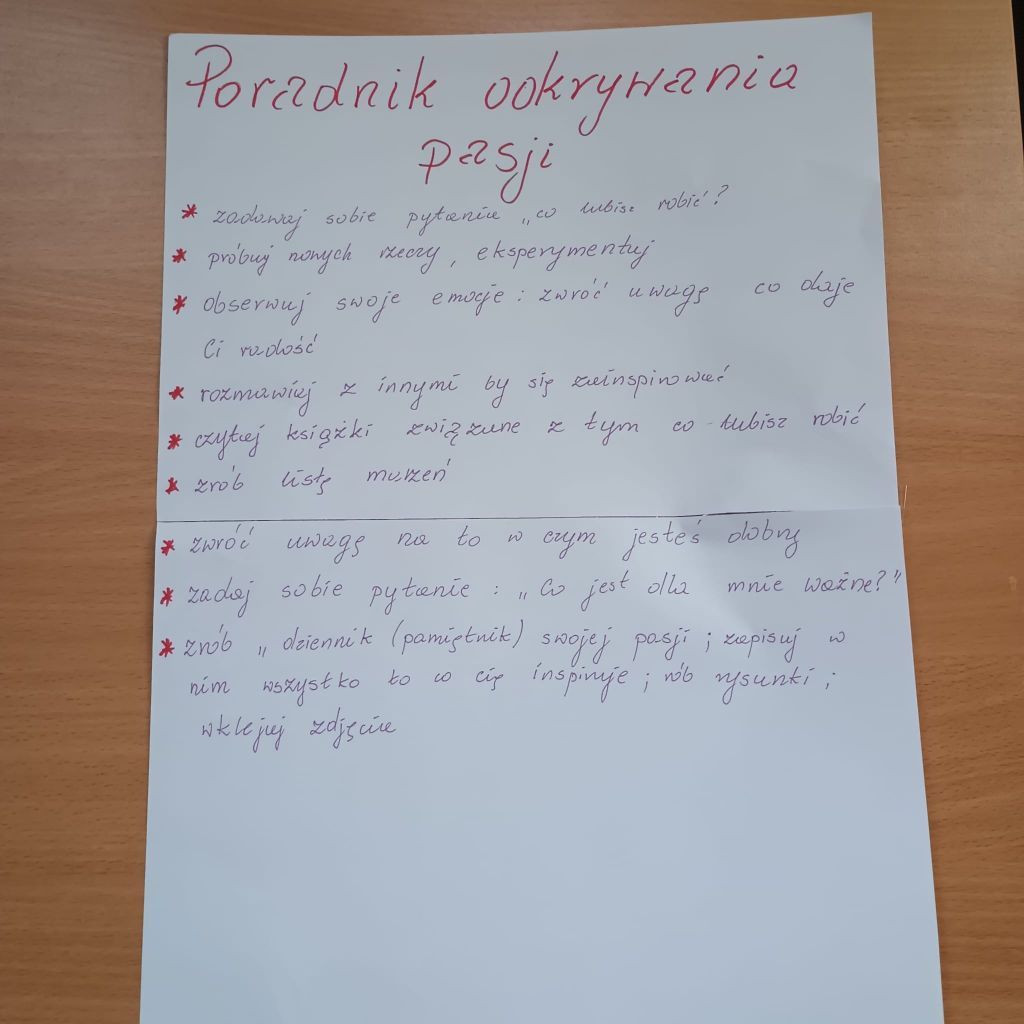 Poradnik ookrywania
pasji
* zadawaj sobie pytania „co lubisz robić?
* próbuj nowych rzeczy, eksperymentuj
* obserwuj swoje emocje: zwróć uwagę co daje
Ci radość
* rozmawiaj z innymi by się zainspirować
* czytaj książki związane z tym co lubisz robić
* zrób listę marzeń
* zwróć uwagę na to w czym jesteś dobry
* zadaj sobie pytanie: „Co jest dla mnie ważne?"
* zrób „dziennik (pamiętnik) swojej pasji; zapisuj w
nim wszystko to co cię inspiruje; rób rysunki;
wklejaj zdjęcia